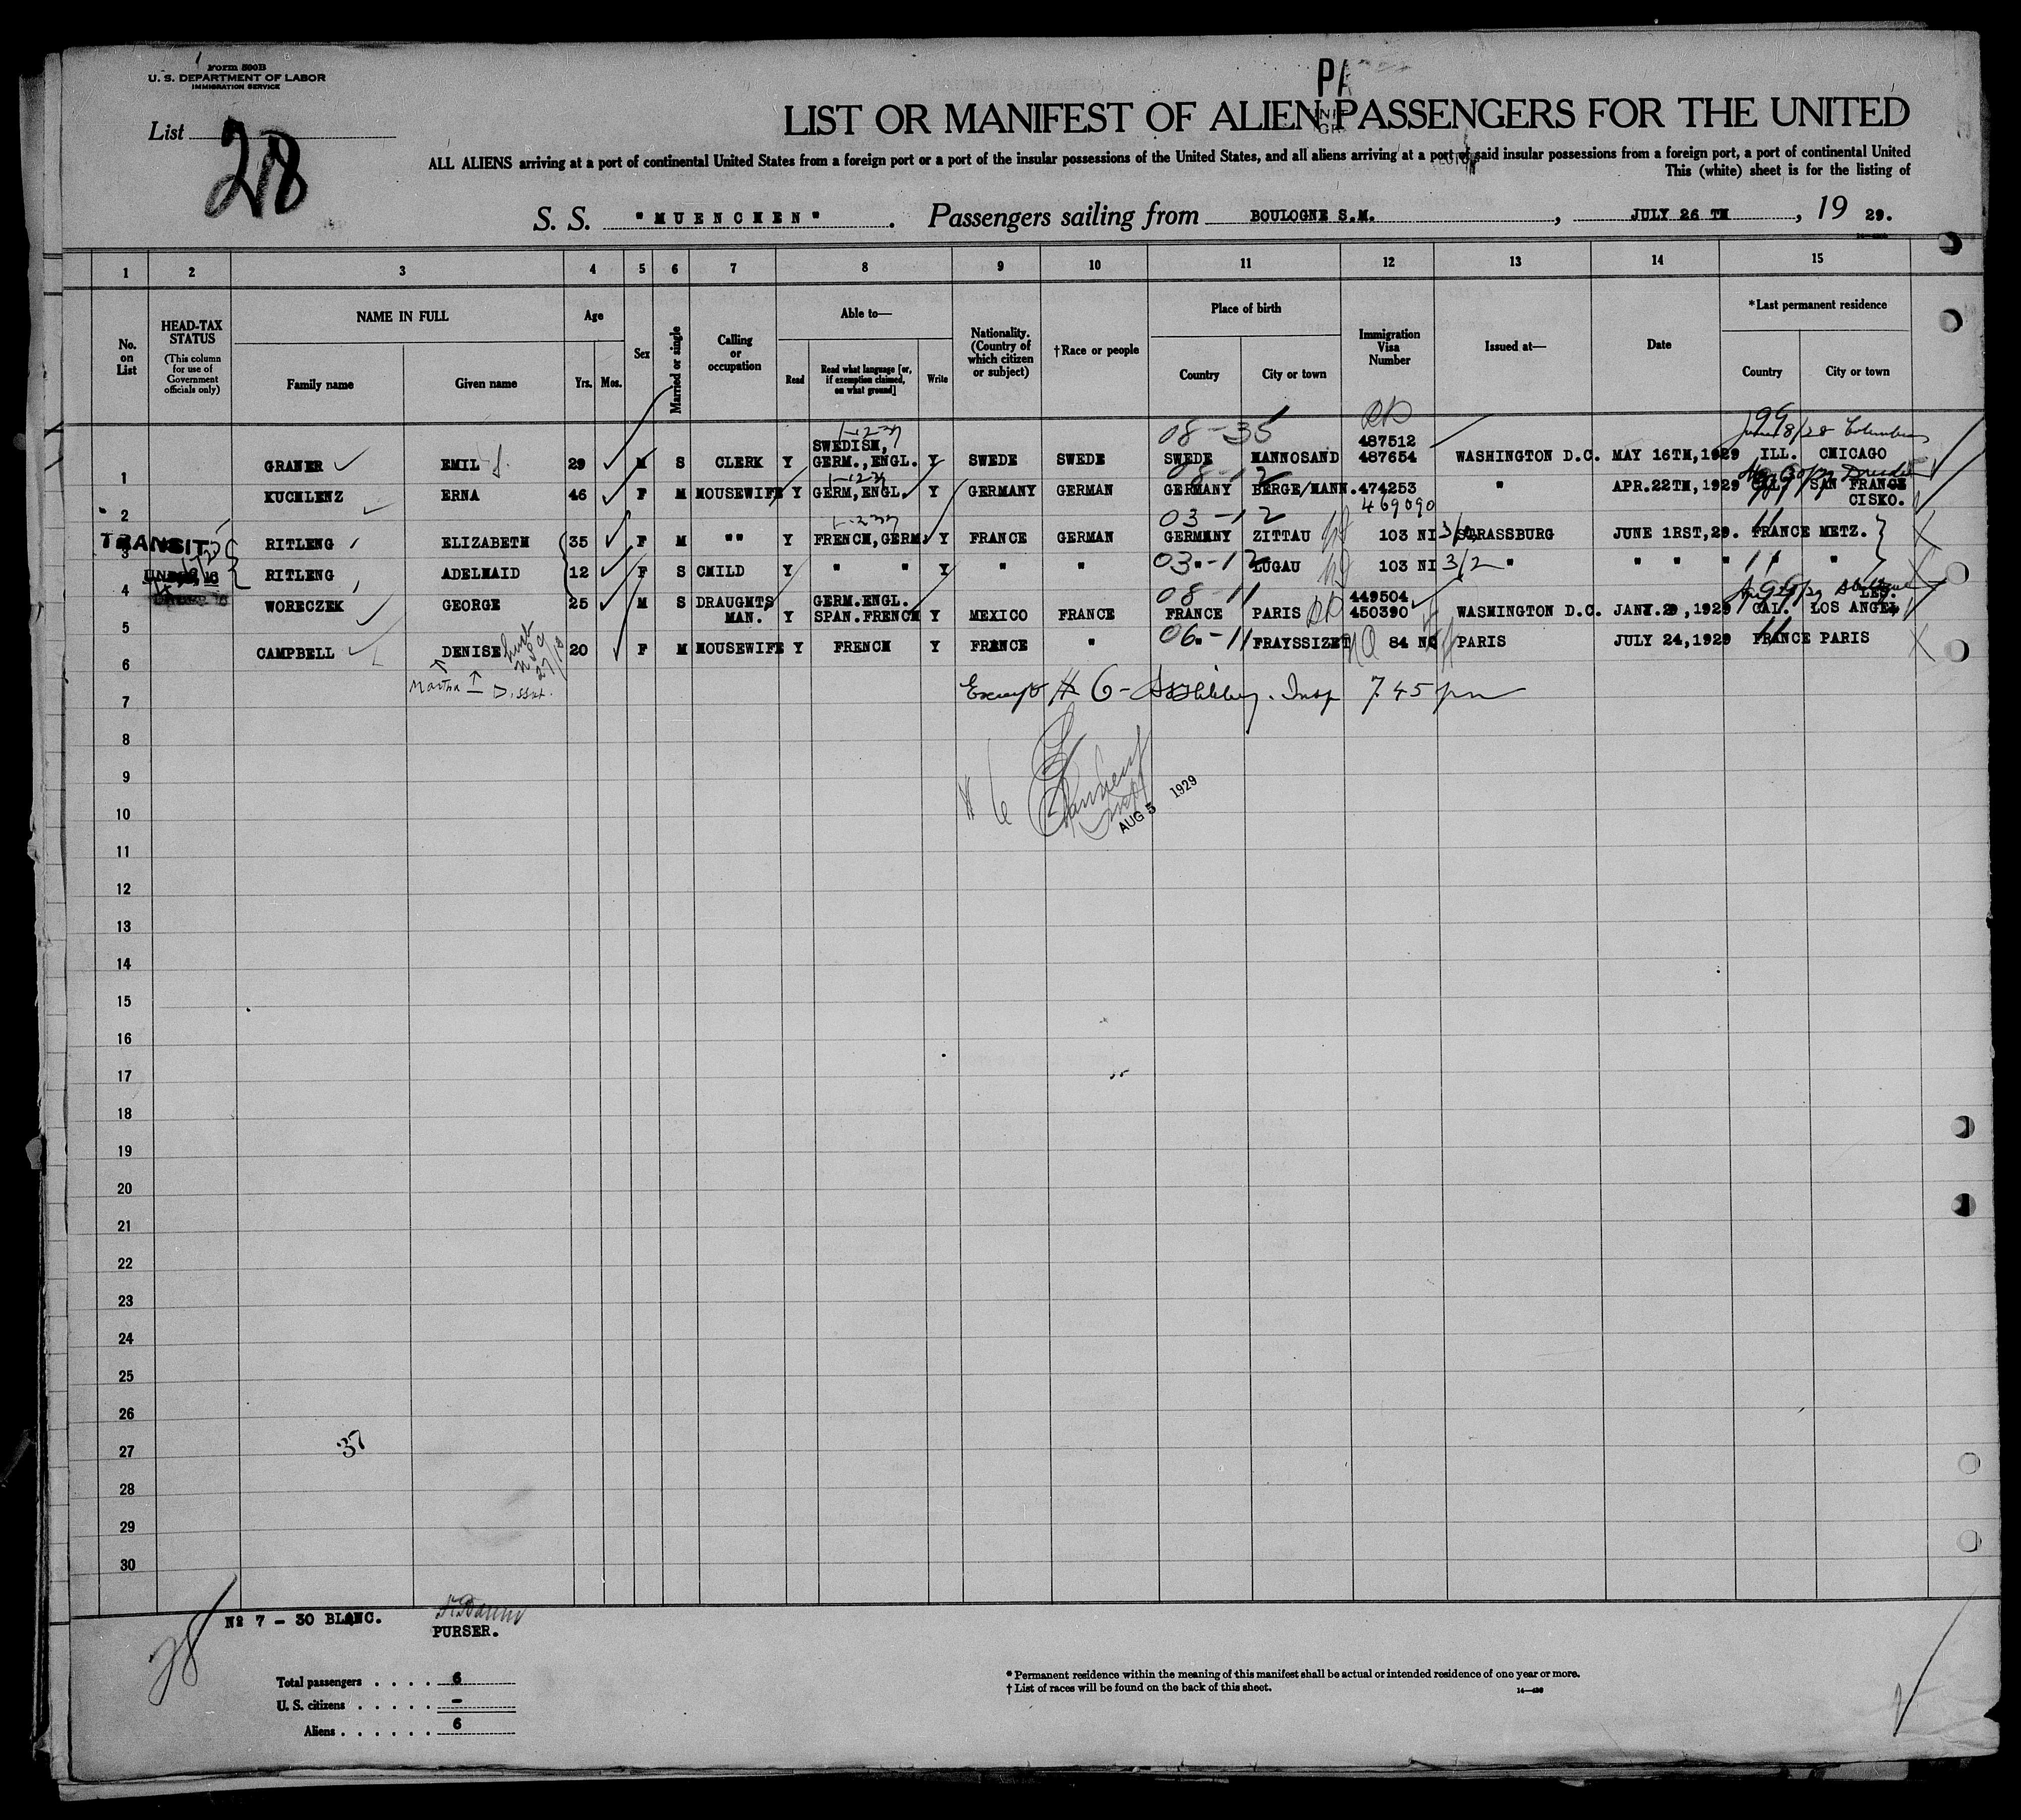 Form 500B
U. S. DEPARTMENT OF LABOR
IMMIGRATION SERVICE
List 28
LIST OR MANIFEST OF ALIEN PASSENGERS FOR THE UNITED
ALL ALIENS arriving at a port of continental United States from a foreign port or a port of the insular possessions of the United States, and all aliens arriving at a port of said insular possessions from a foreign port, a port of continental United
This (white) sheet is for the listing of
S. S. "MUENCHEN". Passengers sailing from BOULOGNE S.M., JULY 26 TH, 19 29.
1 2 3 4 5 6 7 8 9 10 11 12 13 14 15
No. on List
HEAD-TAX STATUS (This column for use of Government officials only)
NAME IN FULL Family name Given name
Age Yrs. Mos.
Sex
Married or single
Calling or occupation
Able to— Read Read what language [or, if exemption claimed, on what ground] Write
Nationality. (Country of which citizen or subject)
†Race or people
Place of birth Country City or town
Immigration Visa Number
Issued at—
Date
*Last permanent residence Country City or town
08-35
1 GRANER EMIL 29 M S CLERK Y SWEDISH, GERM., ENGL. Y SWEDE SWEDE SWEDE HANNOSAND 487512 487654 WASHINGTON D.C. MAY 16TH, 1929 ILL. CHICAGO
08-12
2 KUCHLENZ ERNA 46 F M HOUSEWIFE Y GERM, ENGL. Y GERMANY GERMAN GERMANY BERGE/HANN. 474253 469090 " APR. 22TH, 1929 CAL. SAN FRANCISKO.
TRANSIT
03-12
3 RITLENG ELIZABETH 35 F M "" Y FRENCH, GERM. Y FRANCE GERMAN GERMANY ZITTAU 103 NI 3/2 STRASSBURG JUNE 1RST, 29. FRANCE METZ.
UNDER 16
03-12
4 RITLENG ADELHAID 12 F S CHILD Y " " Y " " " LUGAU 103 NI 3/2 " " " " " "
08-11
5 WORECZEK GEORGE 25 M S DRAUGHTSMAN. Y GERM. ENGL. SPAN. FRENCH Y MEXICO FRANCE FRANCE PARIS 449504 450390 WASHINGTON D.C. JANY. 29, 1929 CAL. LOS ANGELES.
06-11
6 CAMPBELL DENISE 20 F M HOUSEWIFE Y FRENCH Y FRENCE " " FRAYSSIZET 84 NQ PARIS JULY 24, 1929 FRANCE PARIS
Martha
Except # 6 - Insp 7.45 pm
7
8
9
# 6
AUG 5 1929
10
11
12
13
14
15
16
17
18
19
20
21
22
23
24
25
26
27
37
28
29
30
28
Nº 7 - 30 BLANC.
PURSER.
Total passengers 6
U. S. citizens -
Aliens 6
* Permanent residence within the meaning of this manifest shall be actual or intended residence of one year or more.
† List of races will be found on the back of this sheet.